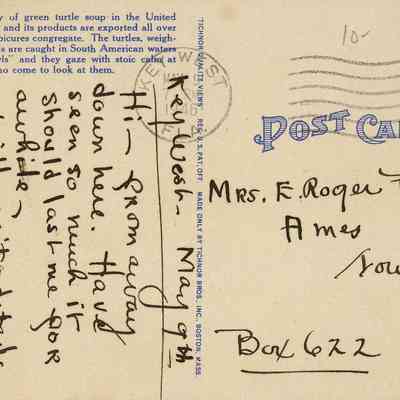 y of green turtle soup in the United
and its products are exported all over
picures congregate. The turtles, weigh-
s are caught in South American waters
ls" and they gaze with stoic calm at
ho come to look at them.
Key West - May 9th
Hi - from away
down here. Have
seen so much it
should last me for
awhile -
TICHNOR QUALITY VIEWS. REG. U.S. PAT. OFF. MADE ONLY BY TICHNOR BROS., INC., BOSTON, MASS.
KEY WEST
FLA
10-
POST CA
Mrs. E. Roger
Ames
Iow
Box 622